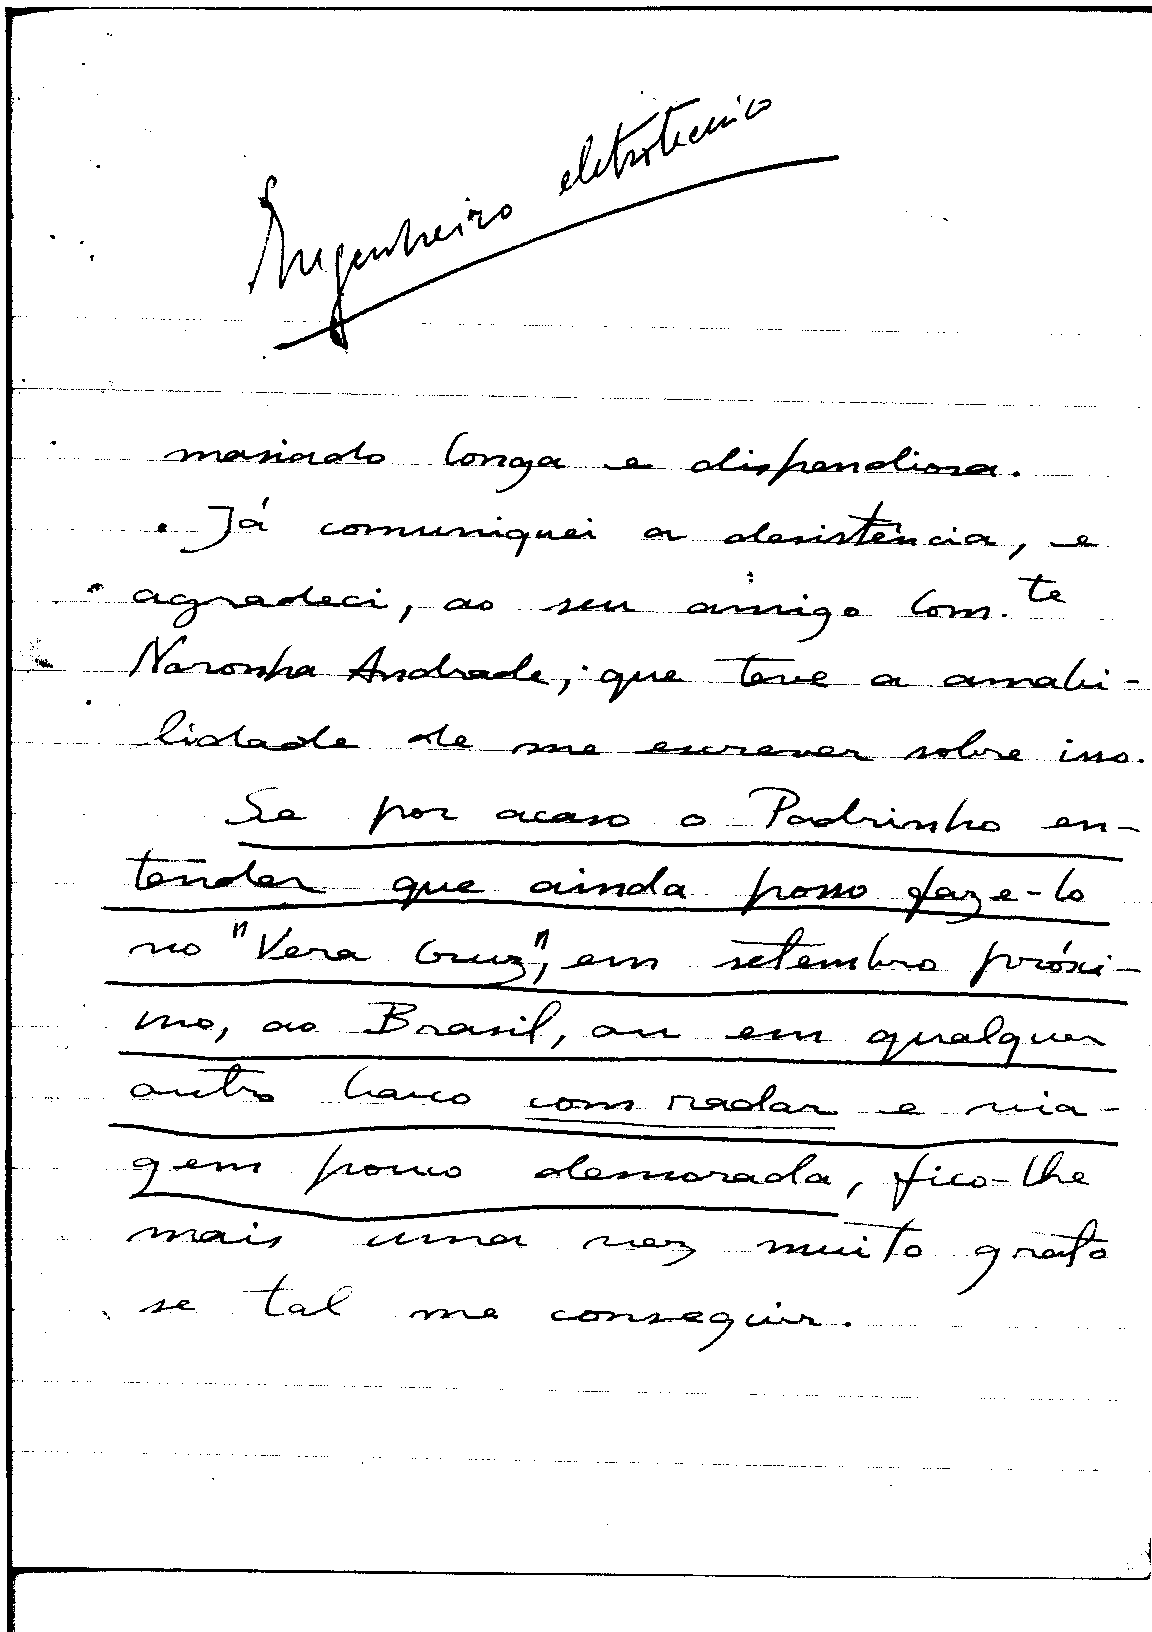 Engenheiro eletrotecnico
masiado longa e dispendiosa.
Já comuniquei a desistência, e
agradeci, ao seu amigo Com.te
Noronha Andrade, que teve a amabi-
lidade de me escrever sobre isso.
Se por acaso o Padrinho en-
tender que ainda posso faze-lo
no "Vera Cruz", em setembro próxi-
mo, ao Brasil, ou em qualquer
outro barco com radar e via-
gem pouco demorada, fico-lhe
mais uma vez muito grato
se tal me conseguir.